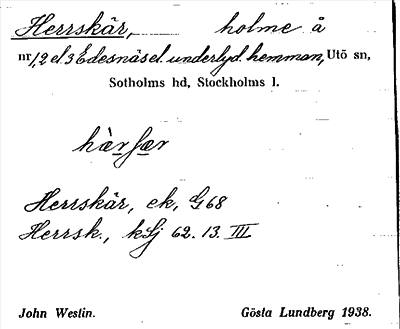 Herrskär, holme å
nr 1, 2 el. 3 Edesnäs el. underlyd. hemman, Utö sn,
Sotholms hd, Stockholms l.
hær sær
Herrskär, ek, G68
Herrsk., kSj 62. 13. III
John Westin. Gösta Lundberg 1938.